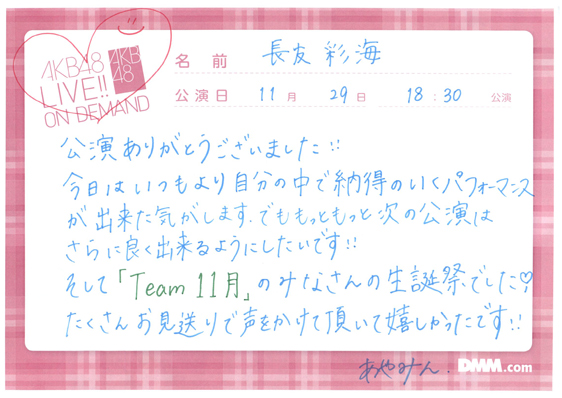 AKB48
LIVE!!
ON DEMAND
AKB
48
名前 長友 彩海
公演日 11月 29日 18:30 公演
公演ありがとうございました!!
今日はいつもより自分の中で納得のいくパフォーマンス
が出来た気がします。でももっともっと次の公演は
さらに良く出来るようにしたいです!!
そして「Team 11月」のみなさんの生誕祭でした♡!
たくさんお見送りで声をかけて頂いて嬉しかったです!!
あやみん.
DMM.com